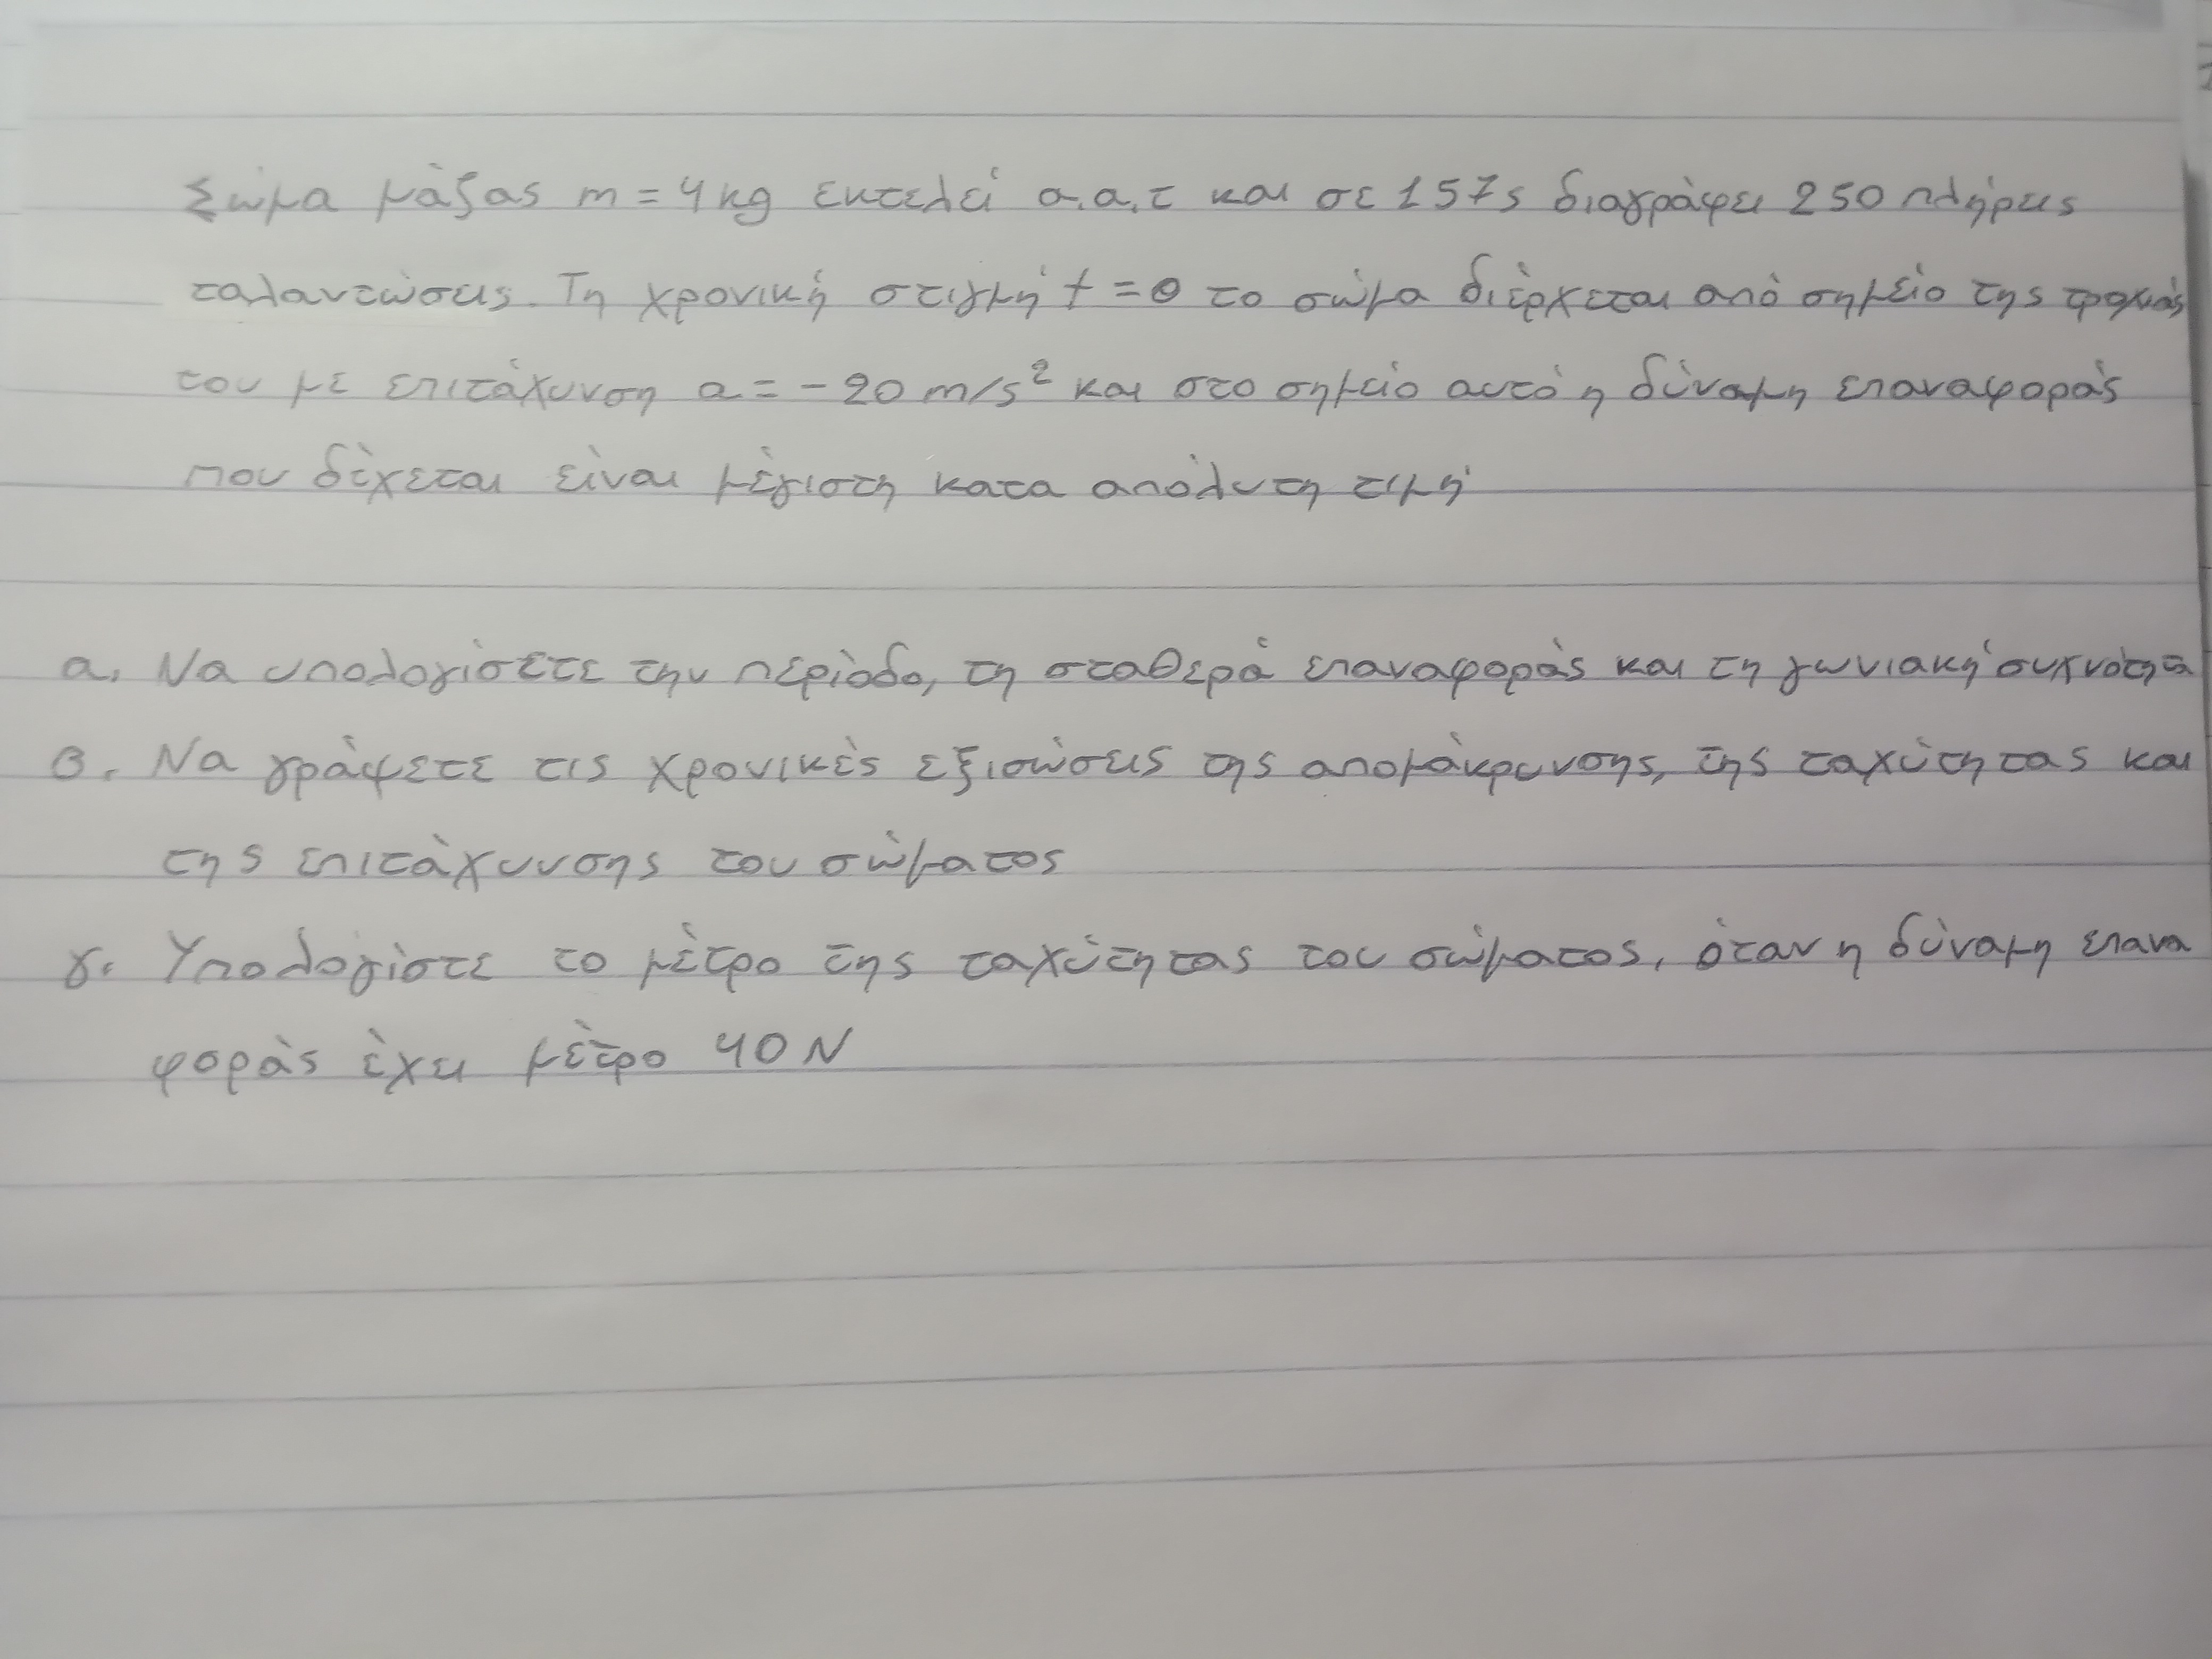 Σώμα μάζας m = 4 kg εκτελεί α.α.τ και σε 157s διαγράφει 250 πλήρεις
ταλαντώσεις. Τη χρονική στιγμή t = 0 το σώμα διέρχεται από σημείο της τροχιάς
του με επιτάχυνση a = - 20 m/s² και στο σημείο αυτό η δύναμη επαναφοράς
που δέχεται είναι μέγιστη κατα απόλυτη τιμή
α. Να υπολογίσετε την περίοδο, τη σταθερά επαναφοράς και τη γωνιακή συχνότητα
β. Να γράψετε τις χρονικές εξισώσεις της απομάκρυνσης, της ταχύτητας και
της επιτάχυνσης του σώματος
γ. Υπολογίστε το μέτρο της ταχύτητας του σώματος, όταν η δύναμη επανα
φοράς έχει μέτρο 40 N